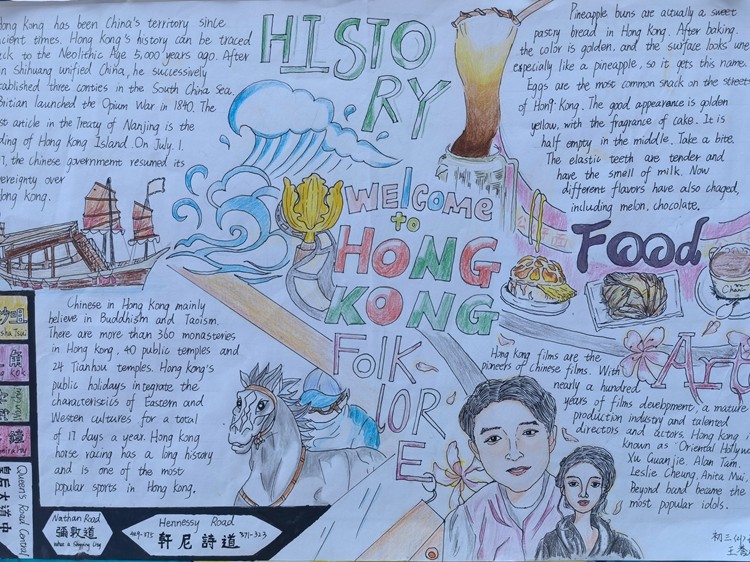 HISTORY
Hong Kong has been China's territory since
ancient times. Hong Kong's history can be traced
back to the Neolithic Age 5,000 years ago. After
Shihuang unified China, he successively
established three conties in the South China Sea.
Britian launched the Opium War in 1840. The
article in the Treaty of Nanjing is the
of Hong Kong Island. On July. 1.
the chinese government resumed its
over
Hong Kong.
Pineapple buns are actually a sweet
pastry bread in Hong Kong. After baking.
the color is golden, and the surface looks
especially like a pineapple, so it gets this name.
Eggs are the most common snack on the street
of Hong Kong. The good appearance is golden
yellow, with the fragrance of cake. It is
half empty in the middle. Take a bite.
The elastic teeth are tender and
have the smell of milk. Now
different flavors have also chaged,
including melon, chocolate.
WElCOmE
to
HONG
KONG
Food
Chicken in Hong Kong mainly
believe in Buddhism and Taoism.
There are more than 360 monasteries
in Hong Kong, 40 public temples and
24 Tianhou temples. Hong Kong's
public holidays integrate the
characteristics of Eastern and
Westen cultures for a total
of 17 days a year. Hong Kong
horse racing has a long history
and is one of the most
popular sports in Hong Kong.
FOlKlORE
Art
Hong Kong films are the
pioneers of Chinese films. With
nearly a hundred
years of films develpment, a mature
production industry and talented
directors and actors, Hong Kong
known as "Oriental
Xu Guanjie. Alan Tam.
Leslie Cheung. Anita Mui.
Beyond band became the
most popular idols.
Queen's Road Central
皇后大道中
Nathan Road
彌敦道
Hennessy Road
軒尼詩道
初三(4)
王